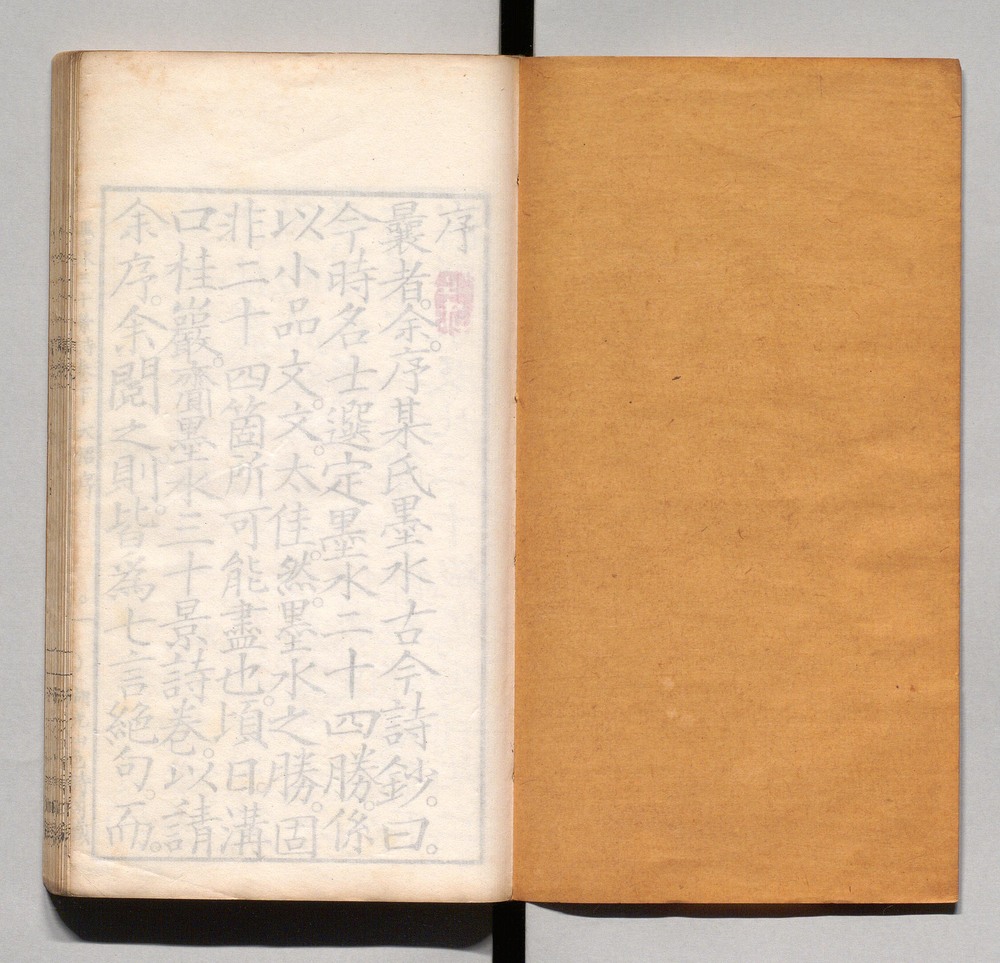 序
曩者。余。序某氏墨水古今詩鈔。曰。
今時名士選定墨水二十四勝。係
以小品文。文。太佳。然。墨水之勝。固
非二十四箇所可能盡也。頃日。溝
口桂巖。齎墨水三十景詩卷。以請
余序。余閲之則。皆爲七言絶句。而。